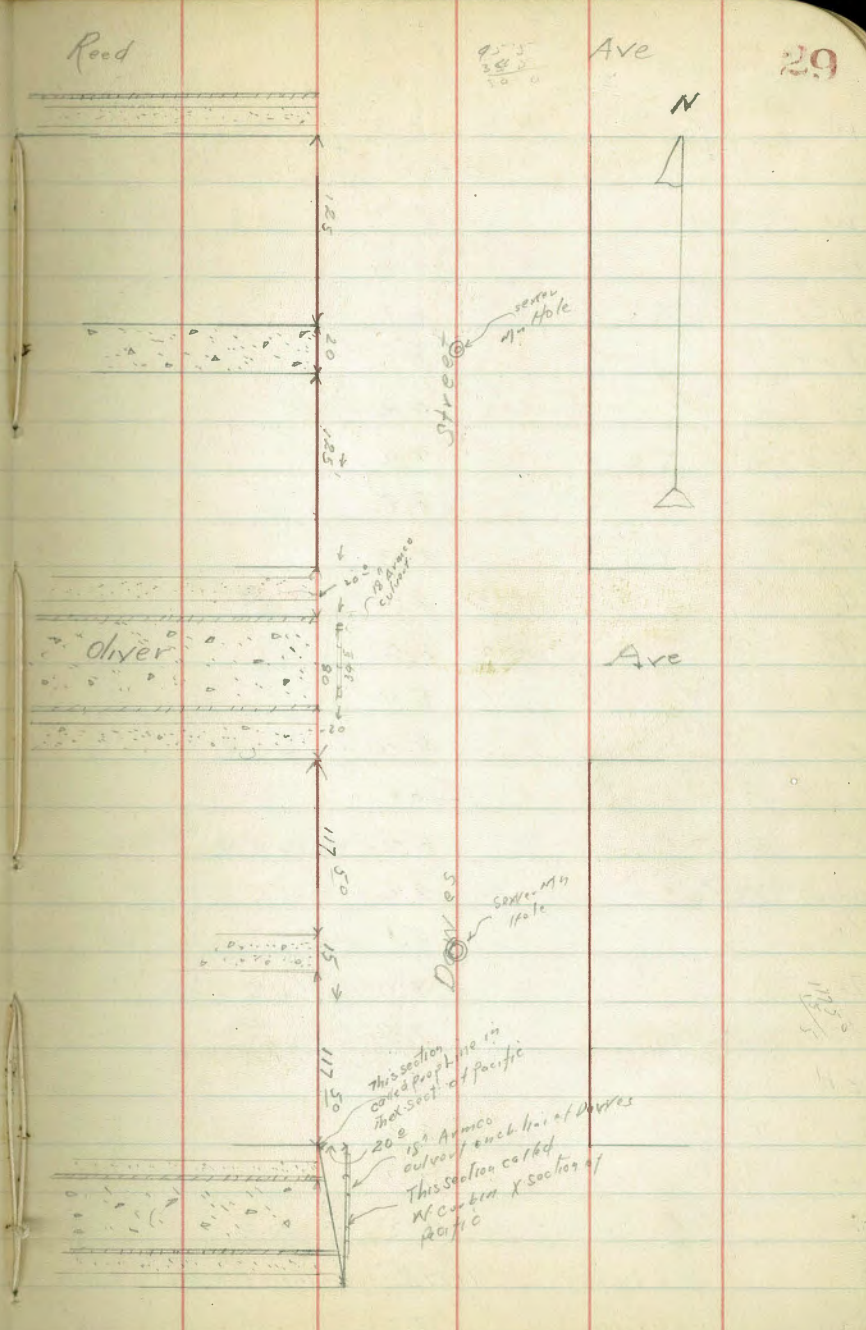 Reed
Ave
29
N
125
sewer
Mn Hole
20
Street
125'
20
18" Armco
culvert
Oliver
80
Ave
20
117 50
sewer Mn
Hole
Dawes
15
117 50
This section
called prop line in
the x-sect of Pacific
20
18" Armco
culvert on cb. line of Dawes
This section called
W curb in X section of
Pacific